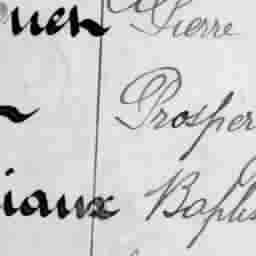 uen Pierre
Prosper
iaux Baptis